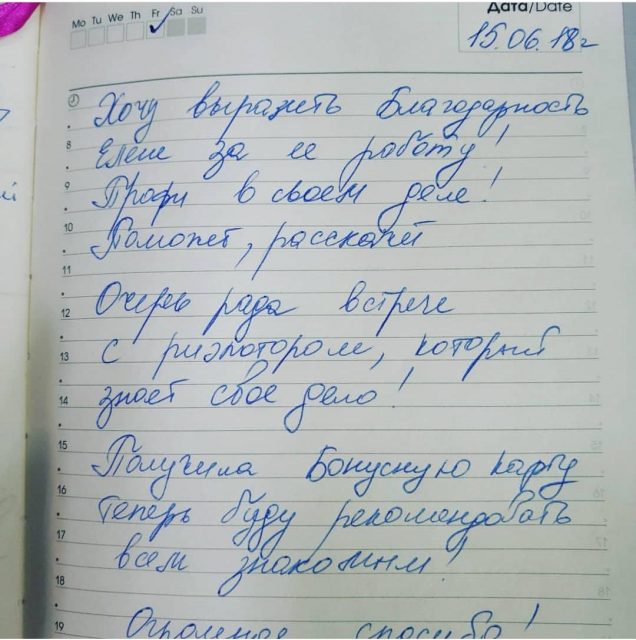 Mo Tu We Th Fr Sa Su
Дата/Date
15.06.18г
Хочу выразить Благодарность
8 Елене за ее работу!
9 Профи в своем деле!
10 Поможет, расскажет
11
12 Очень рада встрече
13 с риэлтором, который
14 знает свое дело!
15
16 Получила Бонусную карту
теперь буду рекомендовать
17 всем знакомым!
18
19 Огромное спасибо!